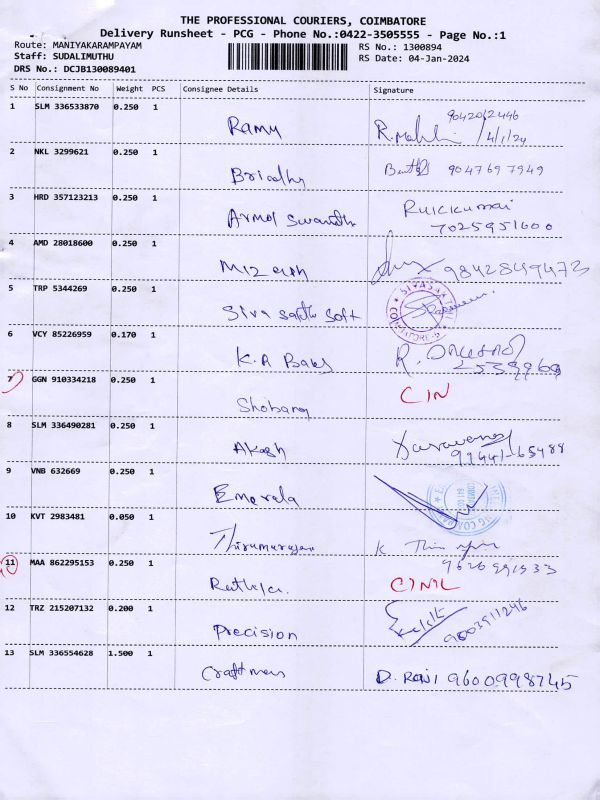 THE PROFESSIONAL COURIERS, COIMBATORE
Delivery Runsheet - PCG - Phone No.:0422-3505555 - Page No.:1
Route: MANIYAKARAMPAYAM RS No.: 1300894
Staff: SUDALIMUTHU RS Date: 04-Jan-2024
DRS No.: DCJB130089401
S No Consignment No Weight PCS Consignee Details Signature
1 SLM 336533870 0.250 1
Ramu 4/1/24
2 NKL 3299621 0.250 1
9047697949
3 HRD 357123213 0.250 1
7025951600
4 AMD 28018600 0.250 1
9842849473
5 TRP 5344269 0.250 1
Siva Sakthi Soft
6 VCY 85226959 0.170 1
K.R Babu
7 GGN 910334218 0.250 1
Shobana CIN
8 SLM 336490281 0.250 1
Akash 99441-65488
9 VNB 632669 0.250 1
Emerala
10 KVT 2983481 0.050 1
Thirumurugan
11 MAA 862295153 0.250 1
12 TRZ 215207132 0.200 1
Precision
13 SLM 336554628 1.500 1
Craftmens D. Raji 9600998745